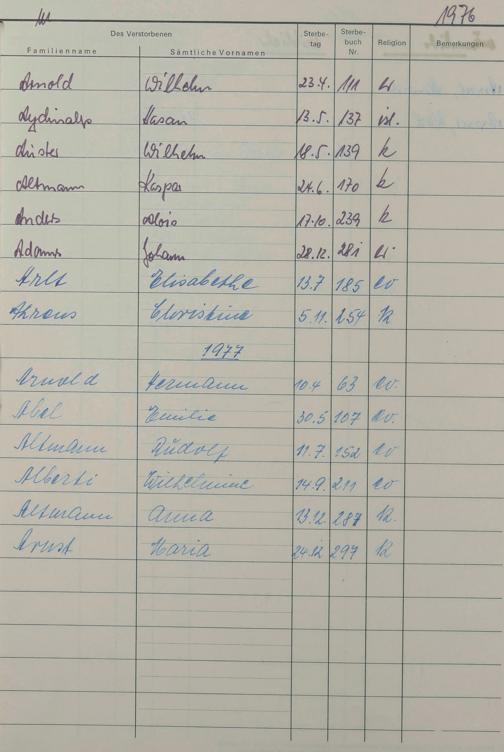 1976
Des Verstorbenen Sterbe- tag Sterbe- buch Nr. Religion Bemerkungen
Familienname Sämtliche Vornamen
Arnold Wilhelm 23.4. 111 ev
Aydinalp Hasan 13.5. 137 isl.
Auster Wilhelm 18.5. 139 k
Altmann Kaspar 24.6. 170 k
Anders Alois 17.10. 239 k
Adams Johann 28.12. 281 ev
Arlt Elisabetha 13.7 185 ev
Ahrens Christine 5.11. 254 k
1977
Arnold Hermann 10.4 63 ev.
Abel Emilie 30.5 107 ev.
Altmann Rudolf 11.7. 152 ev
Alberti Wilhelmine 14.9. 211 ev
Altmann Anna 13.12. 287 k.
Arnst Maria 24.12 297 k